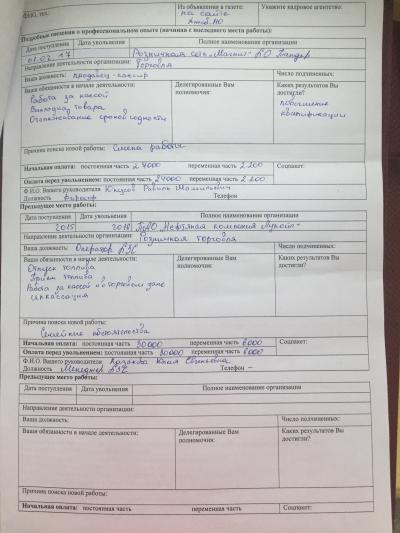 ФИО, тел.
Из объявления в газете: на сайте
Укажите кадровое агентство:
Подробные сведения о профессиональном опыте (начиная с последнего места работы):
Дата поступления Дата увольнения Полное наименование организации
Розничная сеть «Магнит» АО Тандер
Направление деятельности организации: Торговля
Ваша должность: продавец-кассир Число подчиненных:
Ваши обязанности в начале деятельности: Делегированные Вам полномочия: Каких результатов Вы достигли?
Работа за кассой
Выкладка товара
Отслеживание сроков годности
повышение
квалификации
Причина поиска новой работы: Смена работы
Начальная оплата: постоянная часть 24000 переменная часть 2 200 Соцпакет:
Оплата перед увольнением: постоянная часть 24000 переменная часть 2 200
Ф.И.О. Вашего руководителя
Должность Телефон
Предыдущее место работы:
Дата поступления Дата увольнения Полное наименование организации
2015
Нефтяная компания Лукойл
Направление деятельности организации: Розничная торговля
Ваша должность: Оператор АЗС Число подчиненных:
Ваши обязанности в начале деятельности: Делегированные Вам полномочия: Каких результатов Вы достигли?
Отпуск топлива
Прием топлива
Работа за кассой и в торговом зале
инкассация
Причина поиска новой работы:
Семейные обстоятельства
Начальная оплата: постоянная часть 30000 переменная часть 6000 Соцпакет:
Оплата перед увольнением: постоянная часть 30000 переменная часть 6000
Ф.И.О. Вашего руководителя Казакова Юлия Евгеньевна
Должность Менеджер АЗС Телефон –
Предыдущее место работы:
Дата поступления Дата увольнения Полное наименование организации
Направление деятельности организации:
Ваша должность: Число подчиненных:
Ваши обязанности в начале деятельности: Делегированные Вам полномочия: Каких результатов Вы достигли?
Причина поиска новой работы:
Начальная оплата: постоянная часть переменная часть Соцпакет: